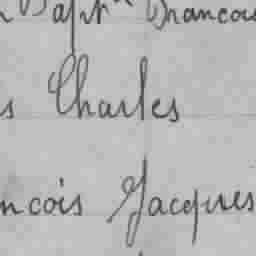 Bapt^te Francois
s Charles
ncois Jacques